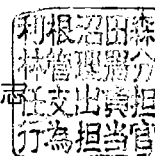 利根沼田森
林管理署分
任支出負担
行為担当官
志